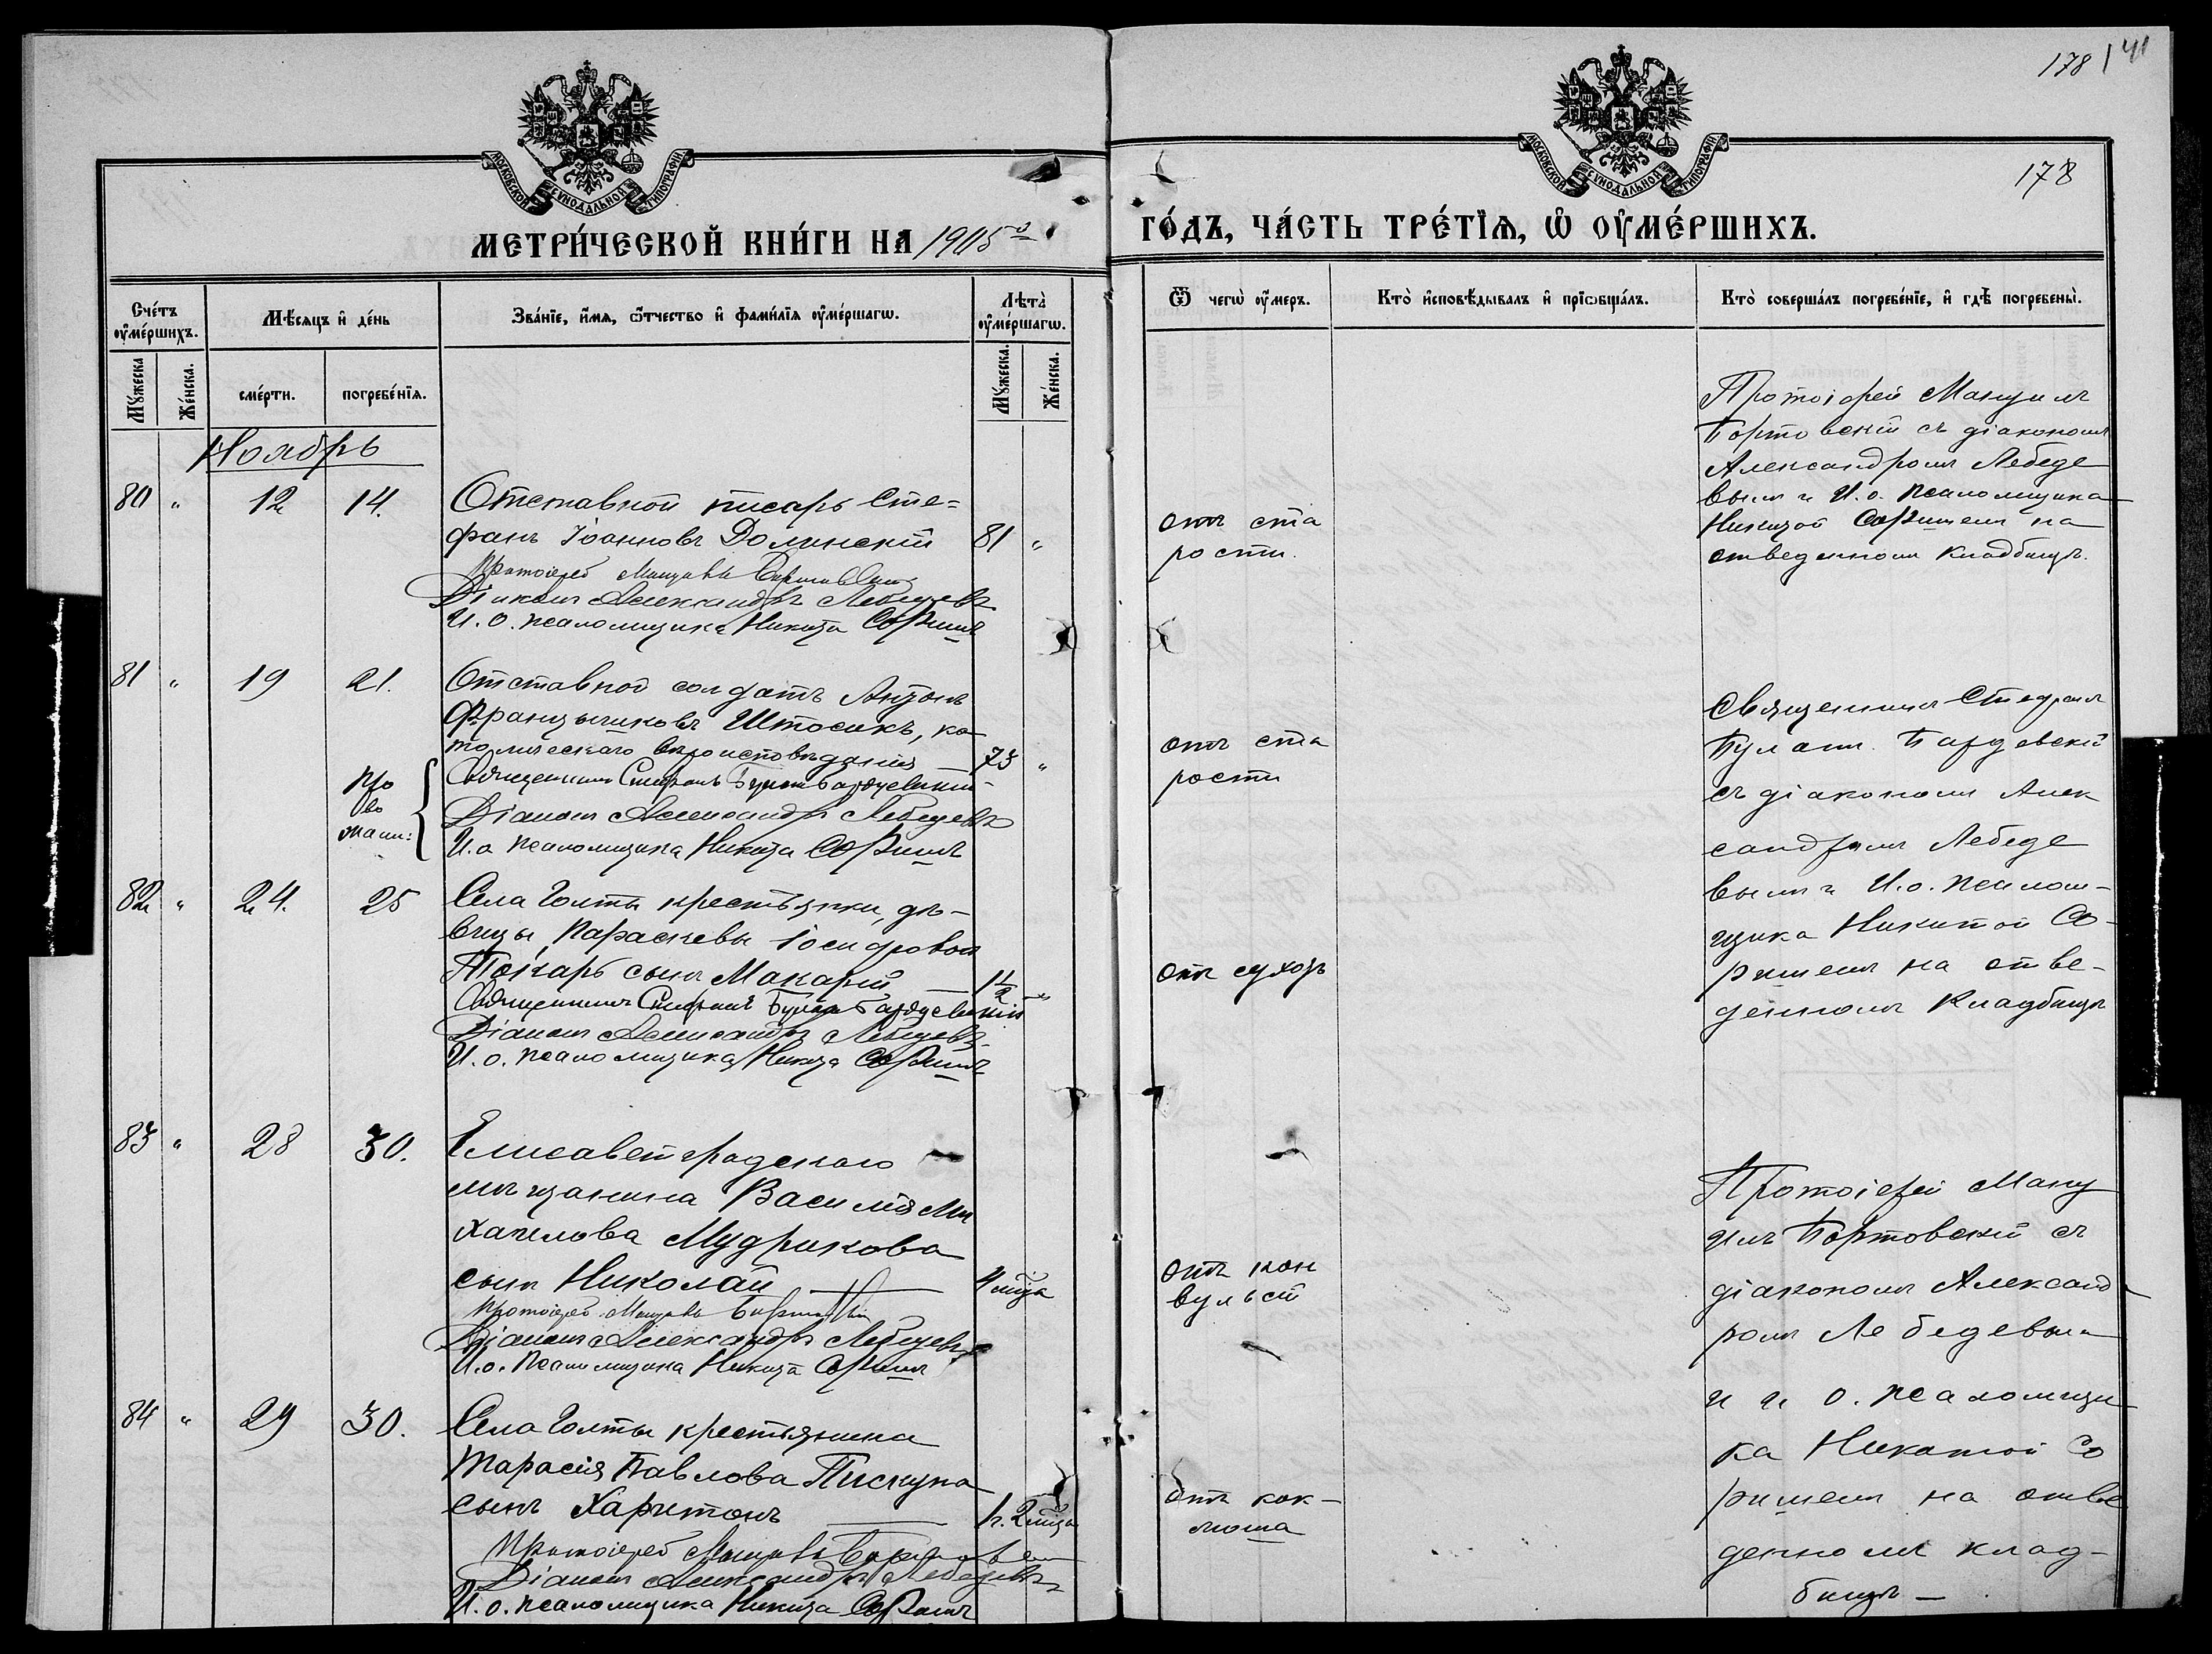 178 / 41
178
МОСКОВСКОЙ СУНОДАЛЬНОЙ ТИПОГРАФІИ
МОСКОВСКОЙ СУНОДАЛЬНОЙ ТИПОГРАФІИ
МЕТРИ́ЧЕСКОЙ КНИ́ГИ НА 1905 ГО́ДЪ, ЧА́СТЬ ТРЕ́ТЇѦ, Ѡ ОУМЕ́РШИХЪ.
Сче́тъ оумершихъ.
Мѣ́сяцъ и де́нь
Зва́нїе, имя, ѻтчество и фамилїя оумершагѡ.
Лѣта̀ оумершагѡ.
Ѿ чегѡ̀ оумеръ.
Кто̀ исповѣдывалъ и прїѡбща́лъ.
Кто̀ соверша́лъ погребе́нїе, и гдѣ̀ погребены̀.
Му́жеска
Же́нска.
сме́рти.
погребе́нїя.
Му́жеска.
Же́нска.
Ноябрь
80 " 12 14.
Отставной писарь Сте=
фанъ Іоанновъ Долинскій 81 "
Протоіерей Мануилъ Бортовскій
Діаконъ Александръ Лебедевъ
И. О. псаломщика Никита Соришъ
отъ ста
рости.
Протоіерей Мануилъ
Бортовскій съ діакономъ
Александромъ Лебеде
вымъ и И. о. псаломщика
Никитой Соришемъ на
отведенномъ кладбищѣ.
81 " 19 21.
Отставной солдатъ Антонъ
Францышковъ Штосикъ, ка
толическаго вѣроисповѣданія 73 "
про
во
жали:
Священникъ Стефанъ Булатъ Бардзевскій
Діаконъ Александръ Лебедевъ
И. о псаломщика Никита Соришъ
отъ ста
рости
Священникъ Стефанъ
Булатъ Бардзевскій
съ діакономъ Алек
сандромъ Лебеде
вымъ и И. о. псалом-
щика Никитой Со-
ришемъ на отве-
денномъ кладбищѣ
82 " 24. 25
Села Голты крестьянки, дѣ-
вицы, Параскевы Іосифовой
Токарь сынъ Макарій 1 1/2
Священникъ Стефанъ Булатъ Бардзевскій
Діаконъ Александръ Лебедевъ
И. о. псаломщика Никита Соришъ
отъ сухотъ
83 " 28 30.
Елисаветградскаго
мѣщанина Василія Ми
хаилова Мудрикова
сынъ Николай 4 мѣс
Протоіерей Мануилъ Бортовскій
Діаконъ Александръ Лебедевъ
И. о. Псаломщика Никита Соришъ
отъ кон
вульсій
Протоіерей Ману
илъ Бортовскій съ
діакономъ Александ
ромъ Лебедевымъ
и и о. псаломщи
ка Никитой Со
ришемъ на отве
денномъ клад-
бищѣ —
84 " 29 30.
Села Голты крестьянина
Тарасія Павлова Пискуна
сынъ Харитонъ
Протоіерей Мануилъ Бортовскій
Діаконъ Александръ Лебедевъ
И. о. псаломщика Никита Соришъ
отъ кок-
люша